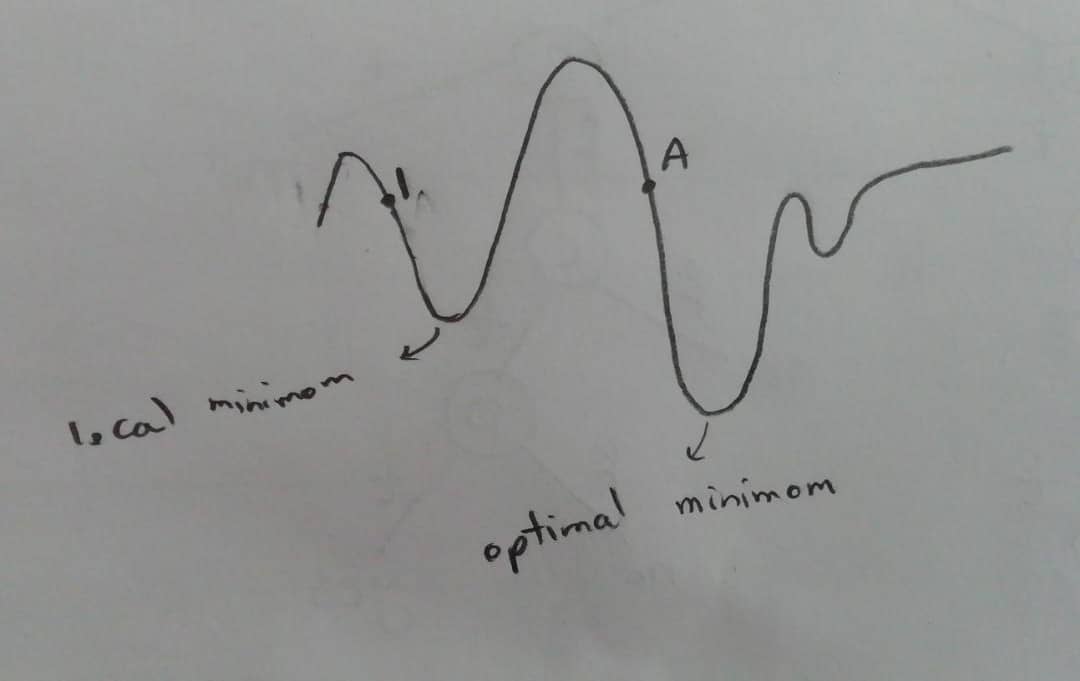 A
local minimom
optimal minimom